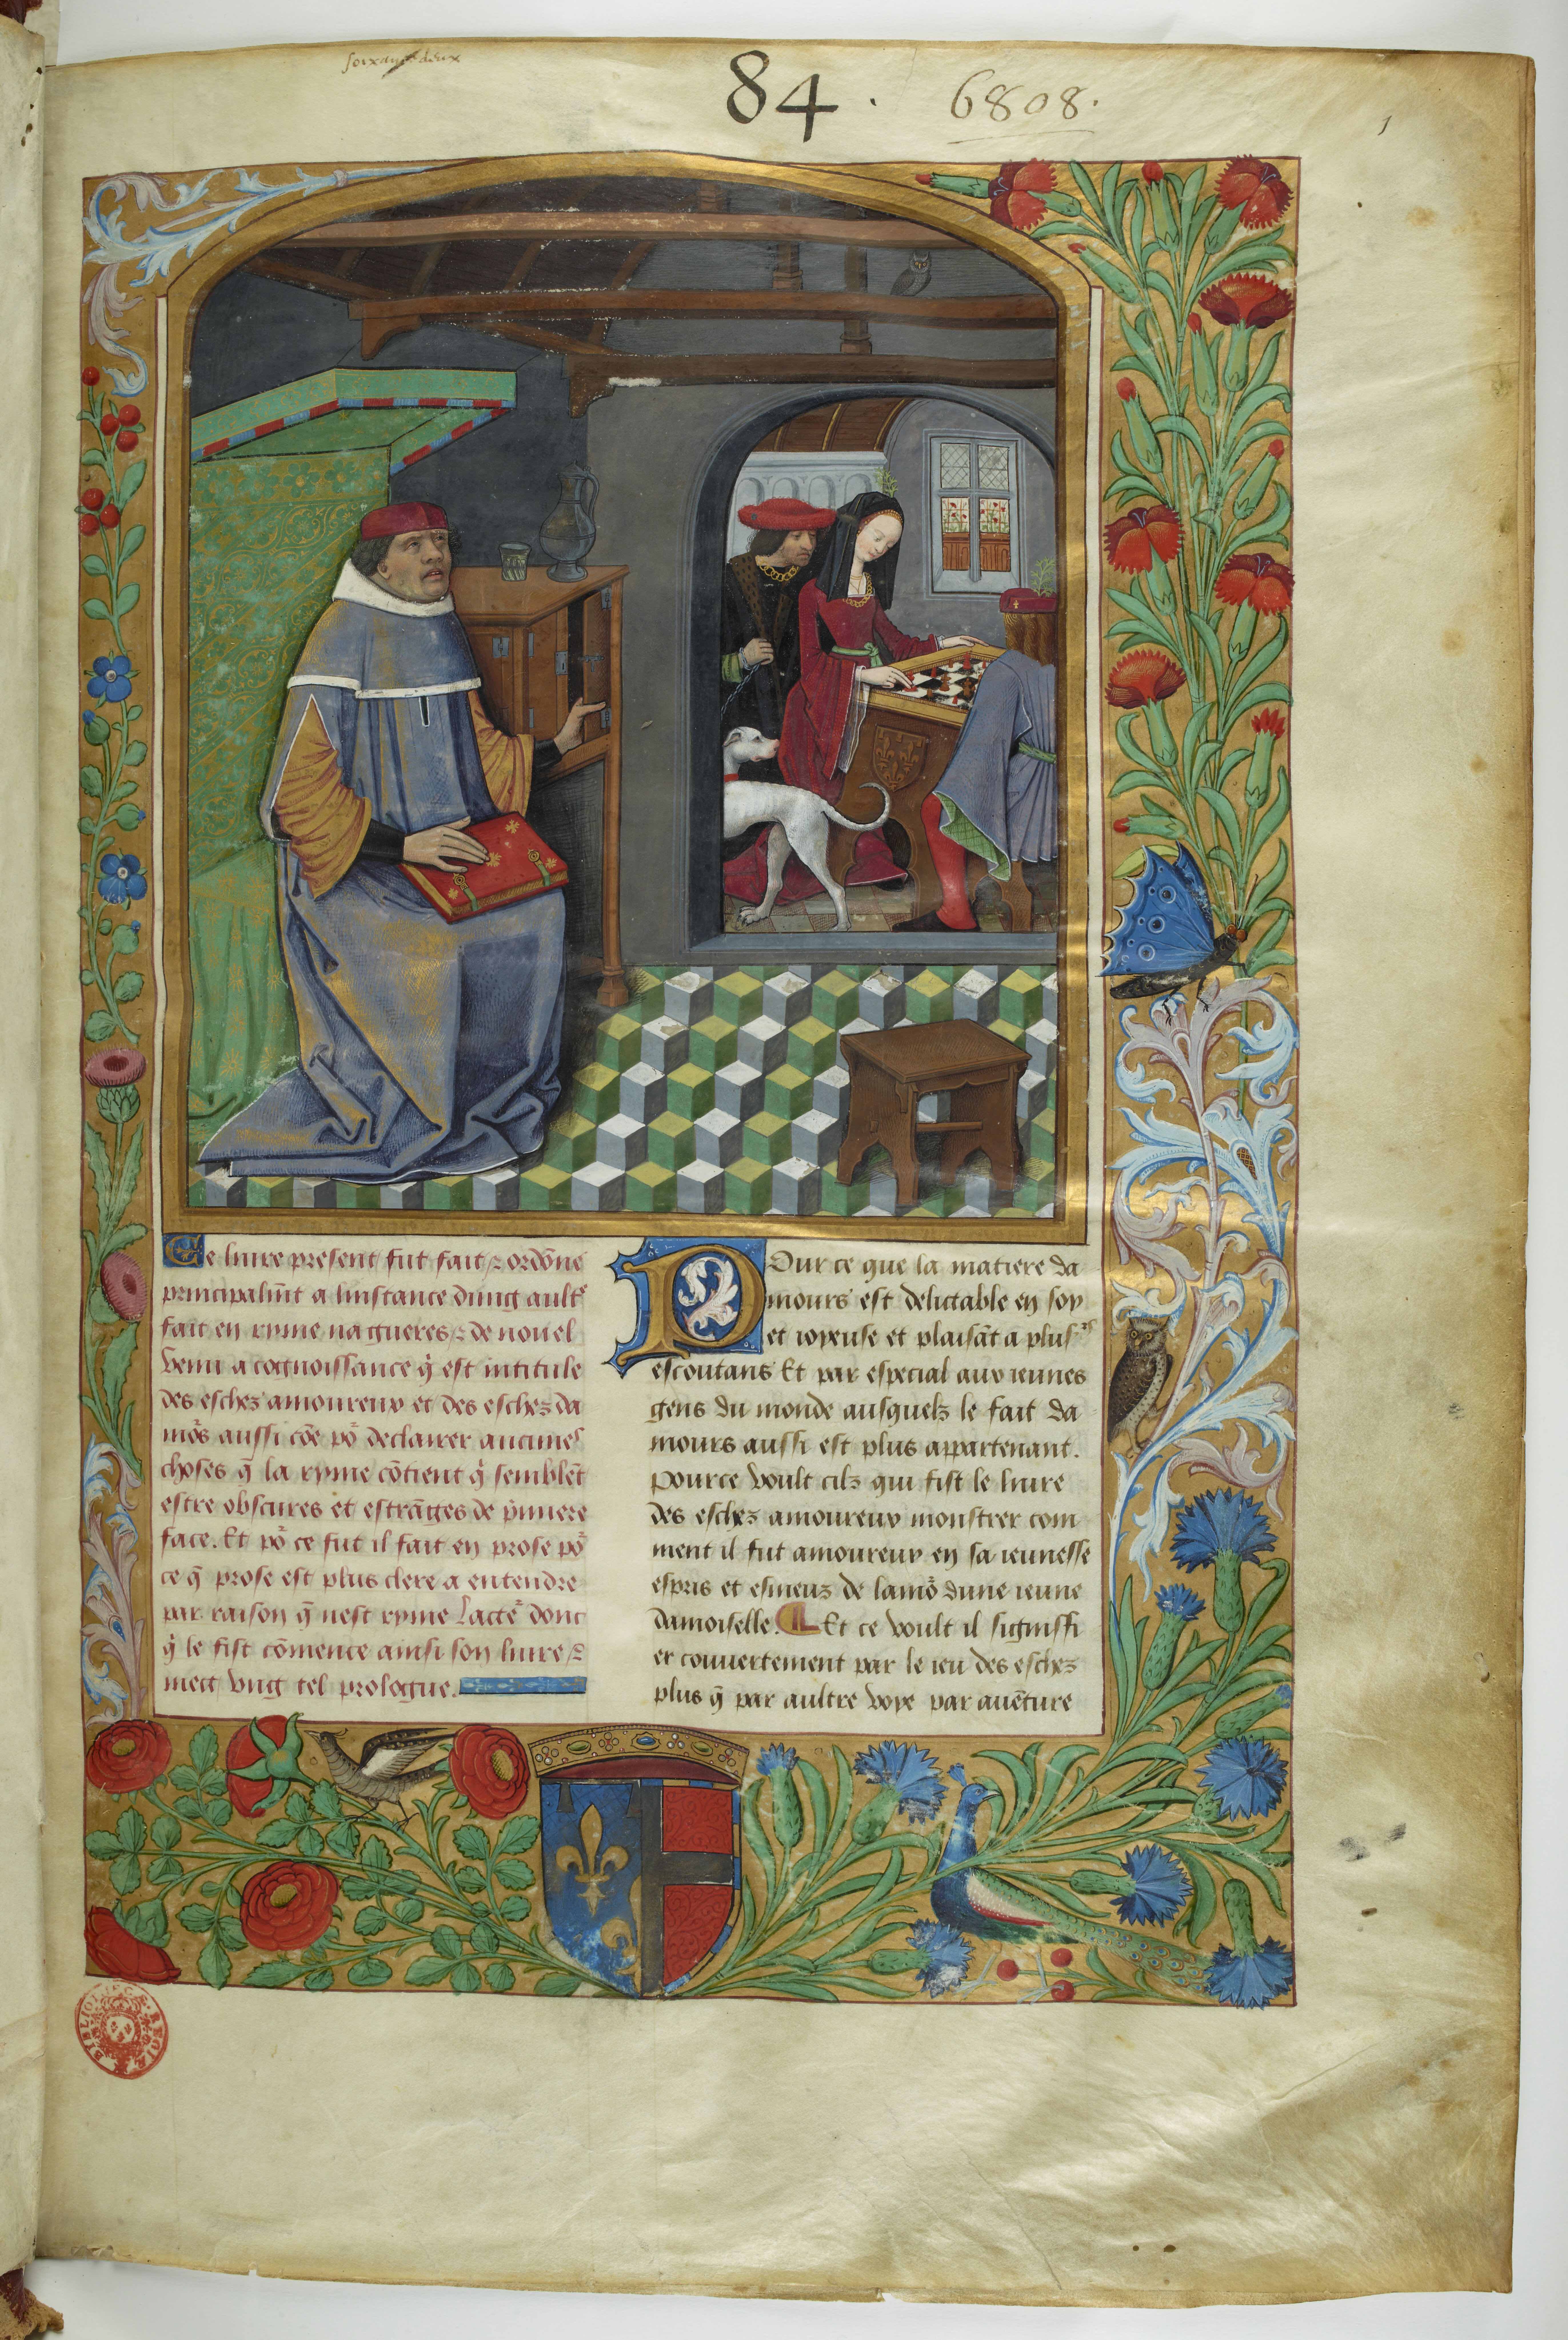 soixante deux
84.
6808.
1
Ce livre present fut fait ⁊ ordōne
principalmt̄ a linstance dung ault'
fait en ryme nagueres ⁊ de nouel
venu a cognoissance q̇ est intitule
des eschez amoureux et des eschez da
mōs aussi cōe po' declairer aucunes
choses q̄ la ryme cōtient q̇ semblēt
estre obscures et estrāges de p̄miere
face. Et po' ce fut il fait en prose po'
ce q̄ prose est plus clere a entendre
par raison q̄ nest ryme Lacte' dont
q̇ le fist cōmence ainsi son livre ⁊
mect vng tel prologue.
Pour ce que la matiere da
mours est delictable en soy
et ioyeuse et plaisāt a plus's
escoutans Et par especial aux ieunes
gens du monde ausquelz le fait da
mours aussi est plus appartenant.
Pource voult cilz qui fist le livre
des eschez amoureux monstrer com
ment il fut amoureux en sa ieunesse
espris et esmeuz de lamo' dune ieune
damoiselle. Et ce voult il signiffi
er couvertement par le ieu des eschez
plus q̄ par aultre voye par avēture
BIBLIOTHECÆ REGIÆ